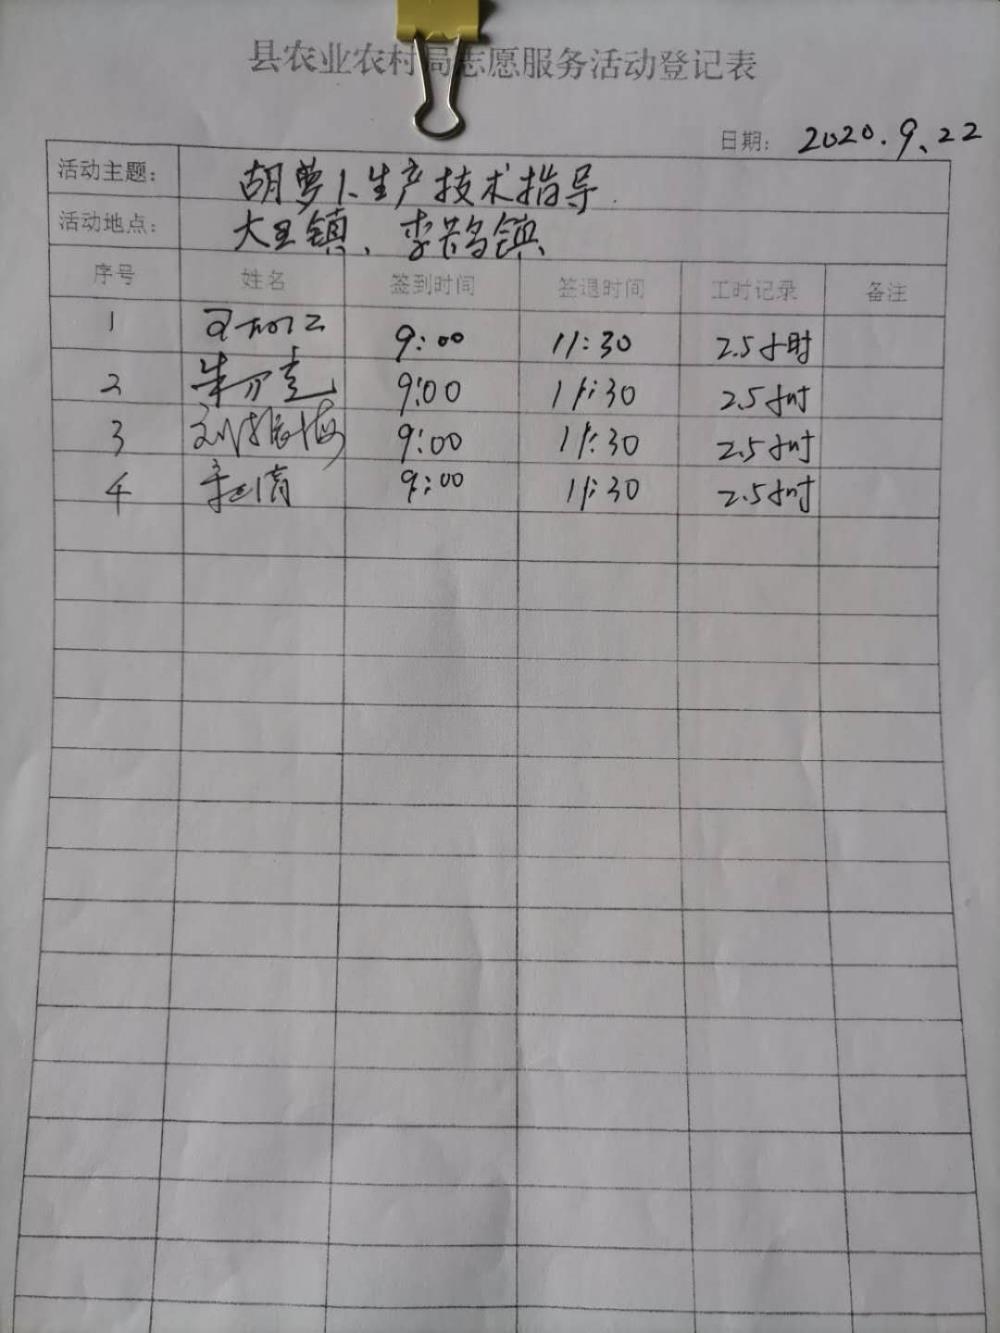 县农业农村局志愿服务活动登记表
日期: 2020.9.22
活动主题: 胡萝卜生产技术指导
活动地点: 大王镇、李鹊镇
序号 姓名 签到时间 签退时间 工时记录 备注
1 9:00 11:30 2.5小时
2 9:00 11:30 2.5小时
3 刘振海 9:00 11:30 2.5小时
4 9:00 11:30 2.5小时